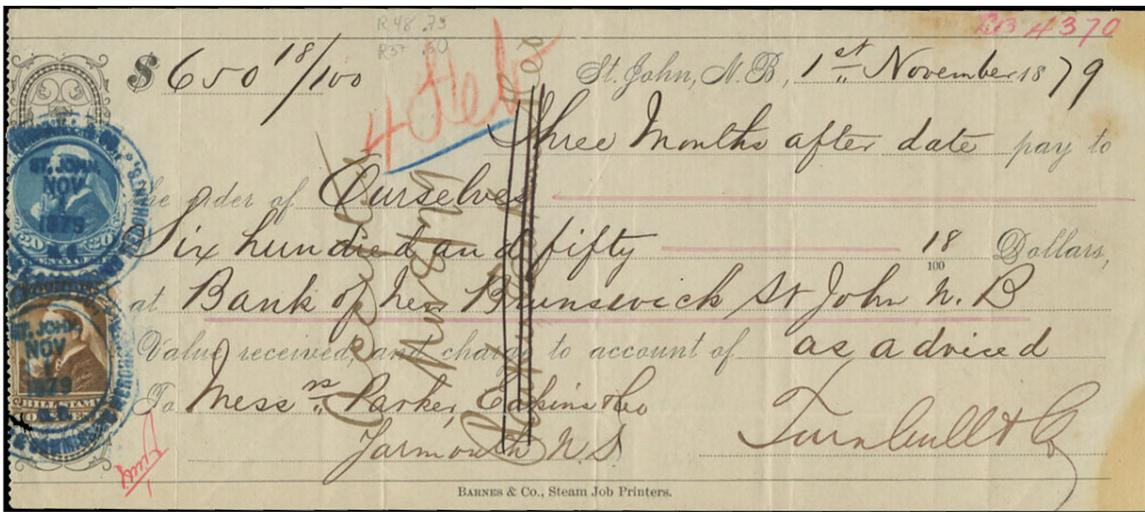 R48 .75
R37 .50
CB 4370
$ 650 18/100
St. John, N.B., 1st November 1879
4 Feb
Three Months after date pay to
the order of Ourselves
Six hundred and fifty 18/100 Dollars,
at Bank of New Brunswick St John N. B
Value received, and charge to account of as advised
To Messrs Parker, Eakins & Co
Yarmouth N S
Turnbull & Co
Accepted
ST. JOHN,
NOV
1
1879
N.B.
20 20
ST. JOHN,
NOV
1
1879
N.B.
BILL STAMP
BARNES & CO., Steam Job Printers.